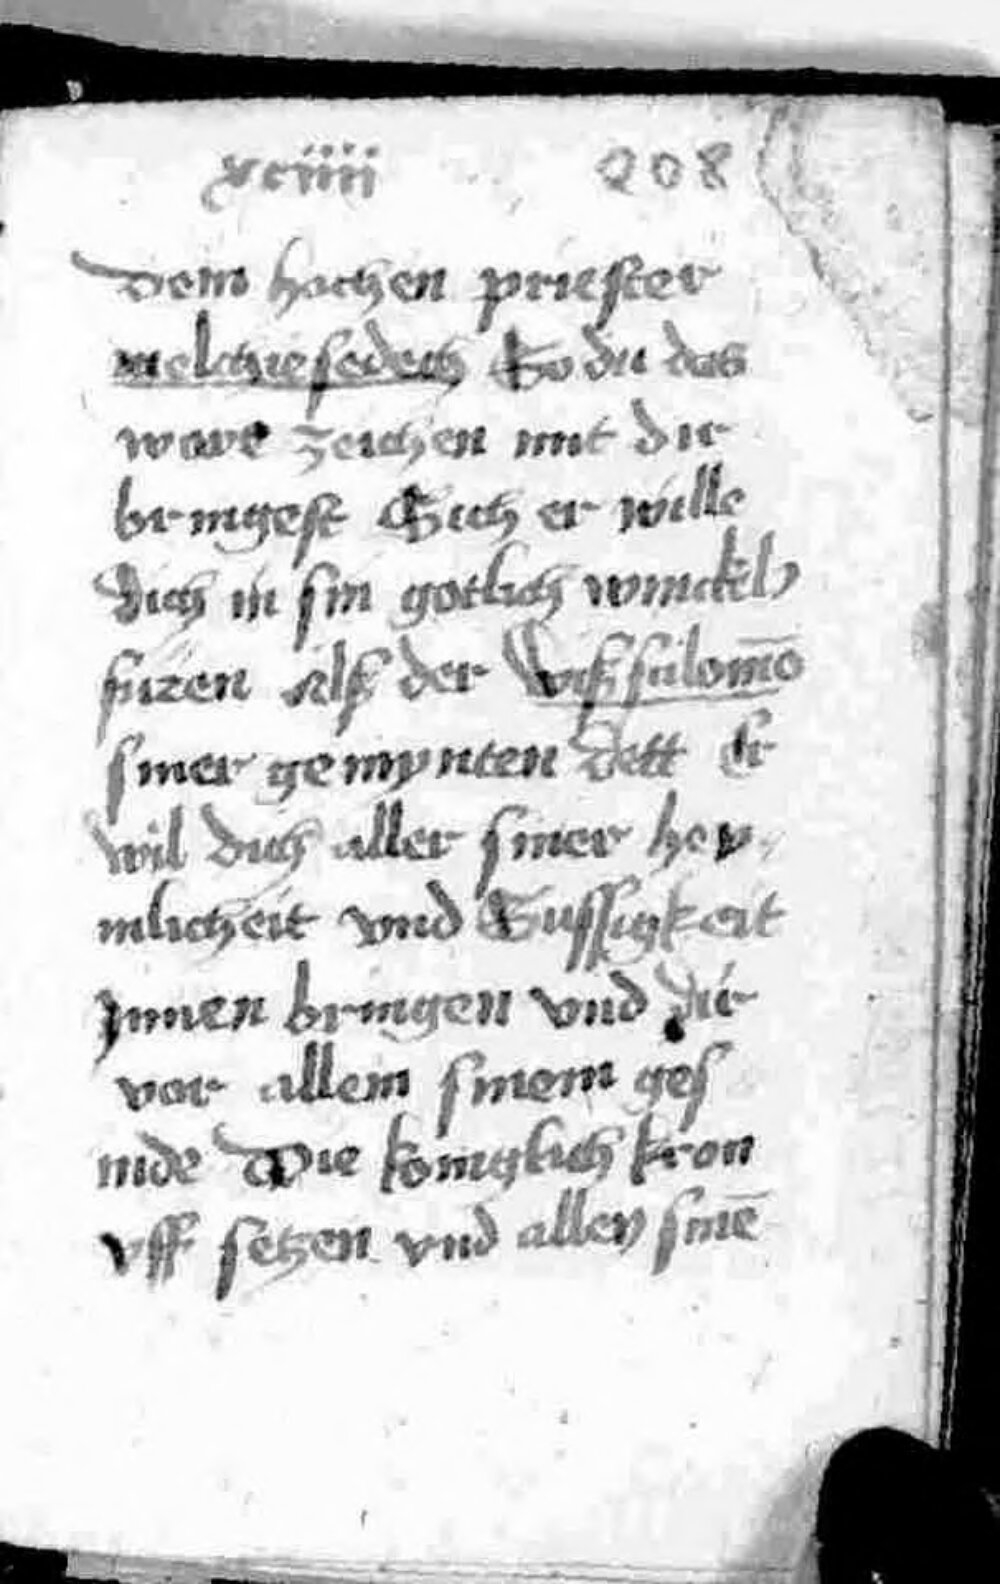 xciiii 208
Dem hochen priester
melchisedech So du das
ware zeichen mit dir
bringest Sich er wille
dich in sin gotlich winckel
füren Als der wiß salomō
siner gemynten dett Er
wil dich aller siner hey
mlicheit vnd Sussigkeit
Jnnen bringen vnd dir
vor allem sinem ges
inde Die koniglich kron
vff setzen vnd allen sinē